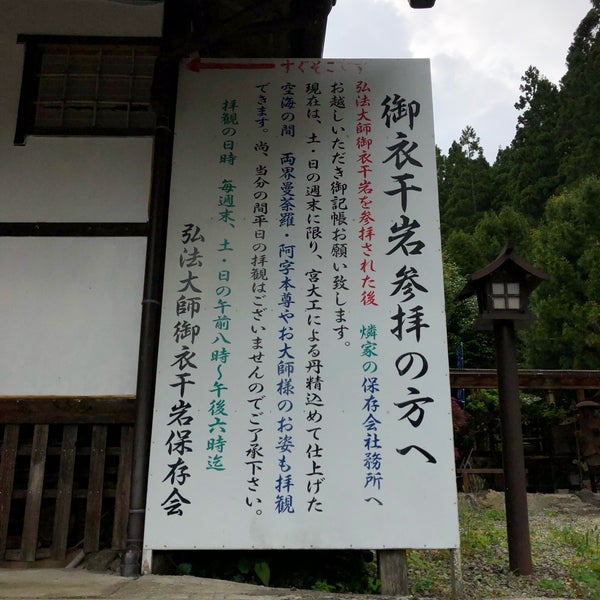 すぐそこです
御衣干岩参拝の方へ
弘法大師御衣干岩を参拝された後 燐家の保存会社務所へ
お越しいただき御記帳お願い致します。
現在は、土・日の週末に限り、宮大工による丹精込めて仕上げた
空海の間 両界曼荼羅・阿字本尊やお大師様のお姿も拝観
できます。尚、当分の間平日の拝観はございませんのでご了承下さい。
拝観の日時 毎週末、土・日の午前八時～午後六時迄
弘法大師御衣干岩保存会